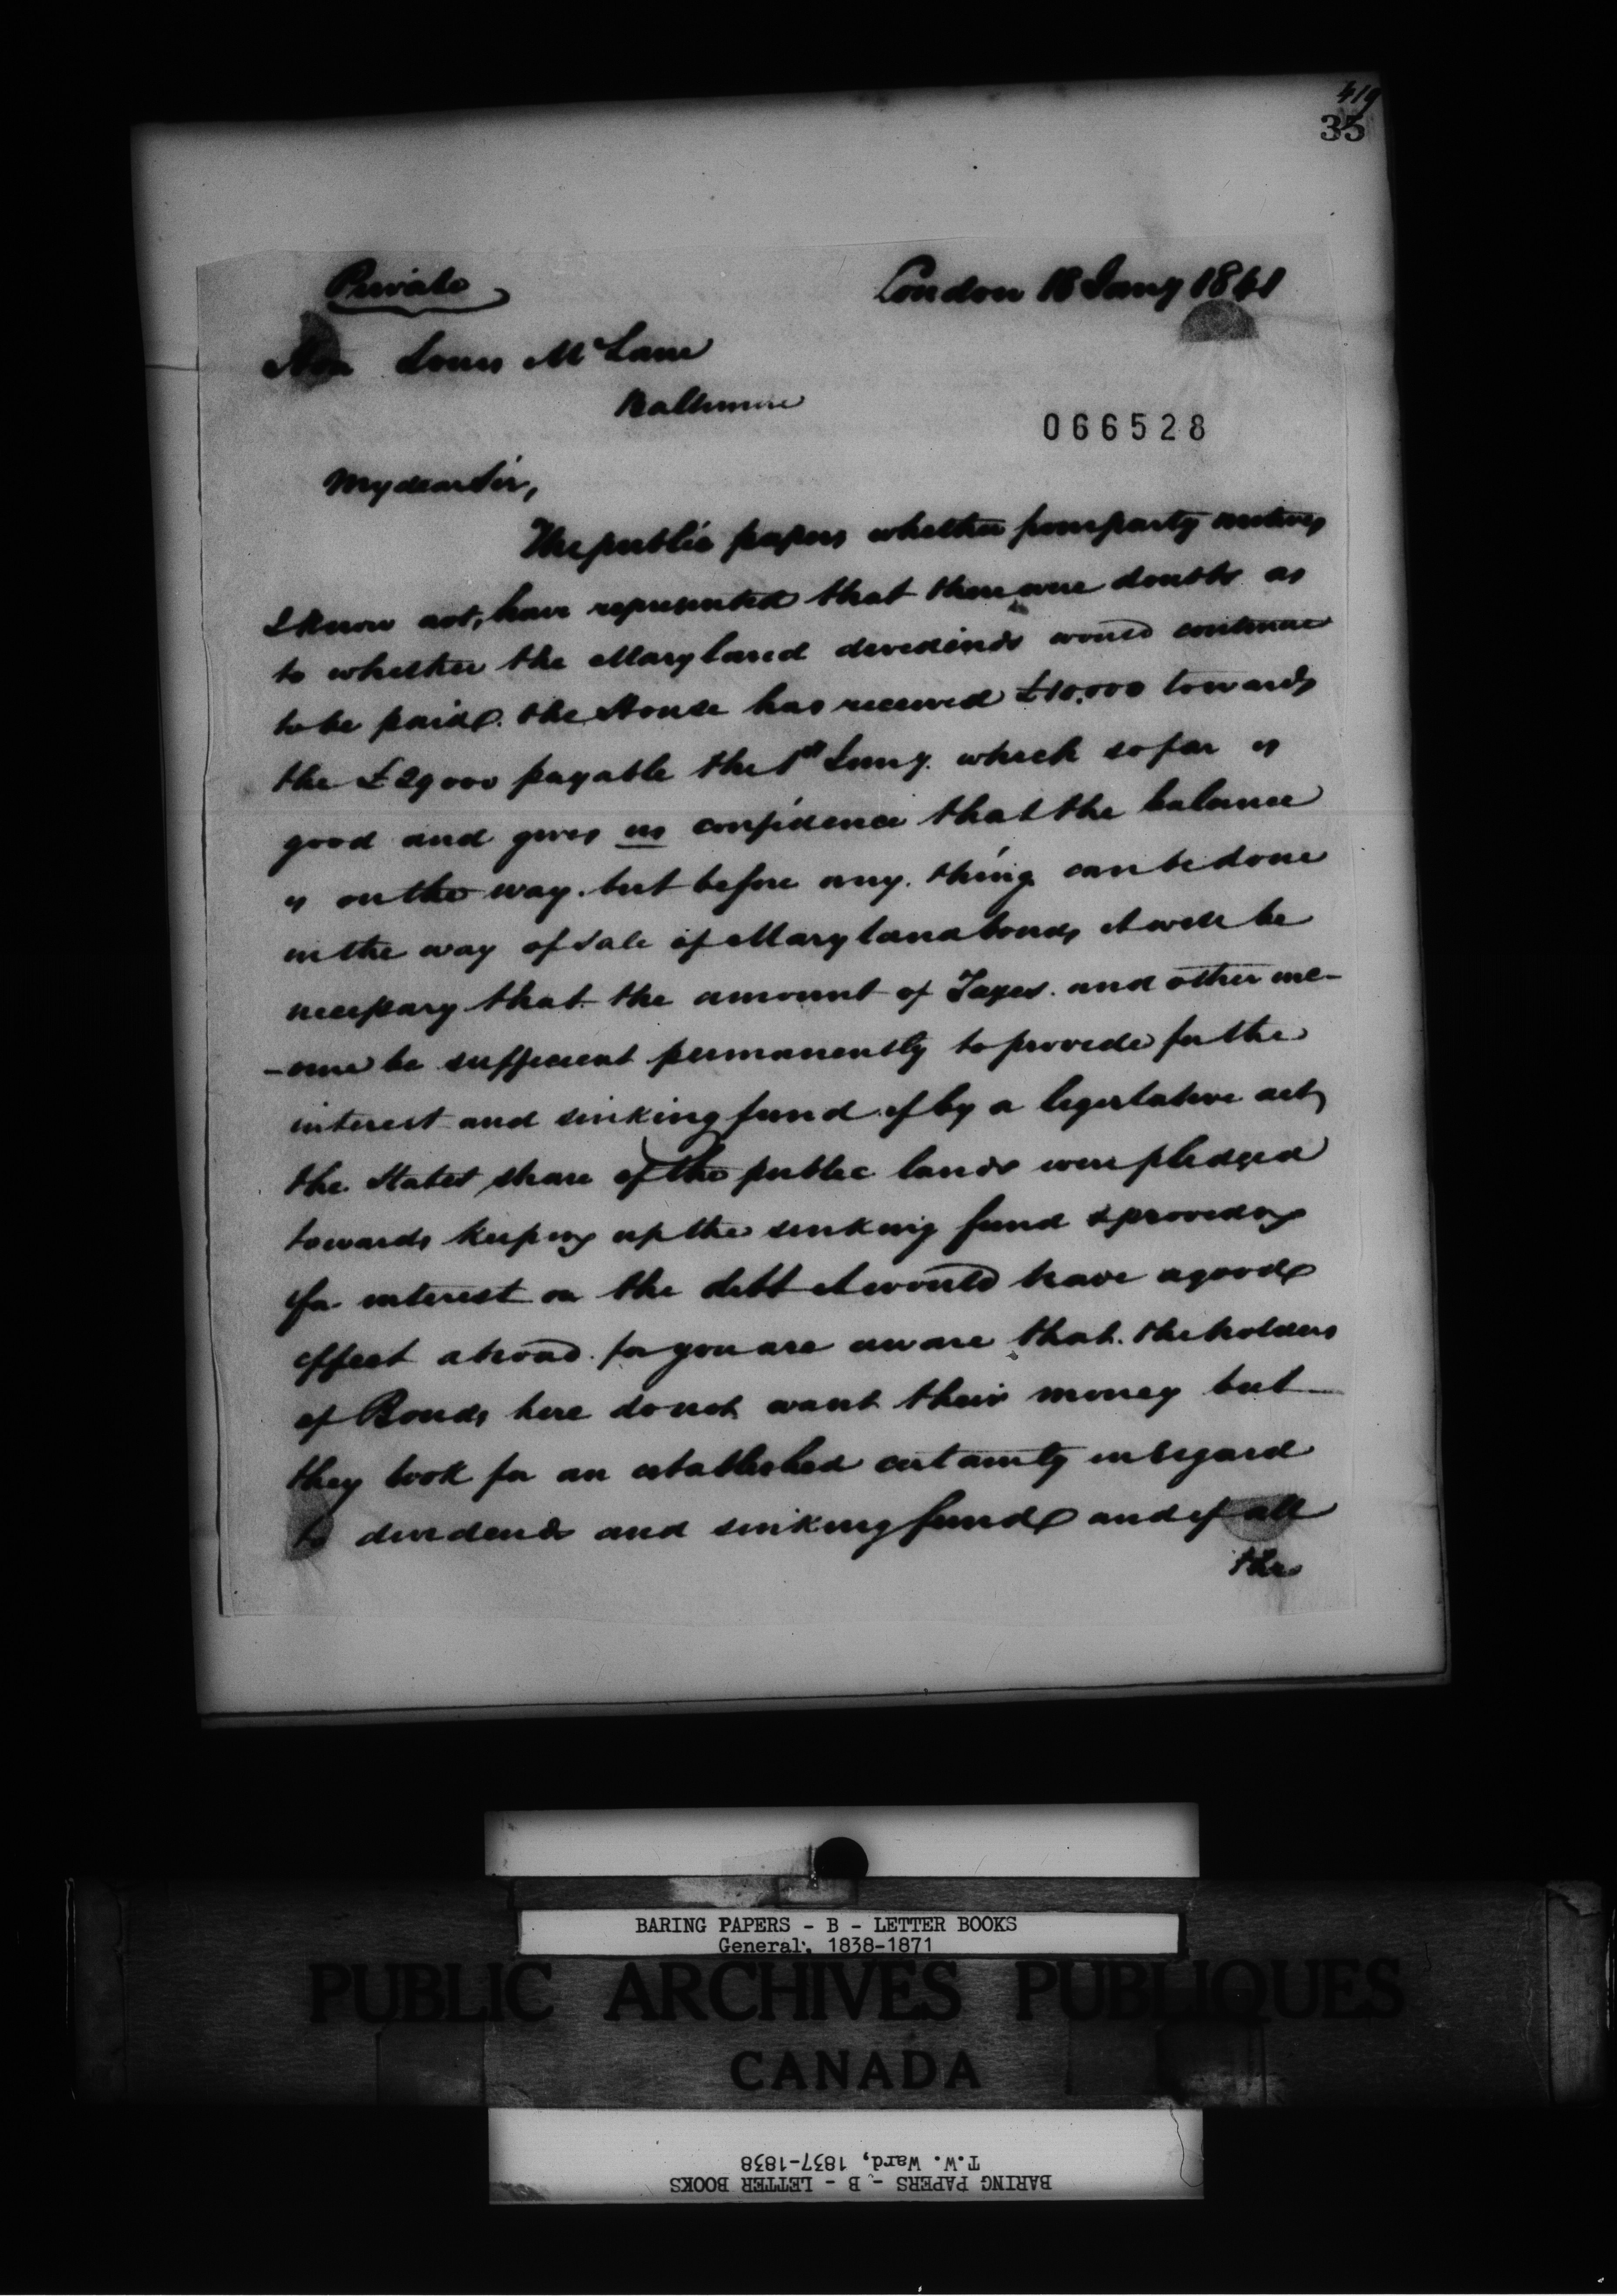 419
35
Private
London 18 Jany 1841
Hon Louis McLane
Baltimore
066528
My dear Sir,
The public papers whether from party motives
I know not, have represented that there were doubts as
to whether the Maryland devedends would continue
to be paid. the House has received £10,000 towards
the £29000 payable the 1st Jany. which so far is
good and gives us confidence that the balance
is on the way. but before any thing can be done
in the way of sale of Maryland bonds it will be
necessary that the amount of Taxes and other inc-
-ome be sufficient permanently to provide for the
interest and sinking fund. if by a legislative act
the States share of the public lands were pledged
towards keeping up the sinking fund & providing
for interest on the debt it would have a good
effect abroad. for you are aware that the holders
of Bonds here do not want their money but
they look for an established certainty in regard
to dividends and sinking fund and if all
the
BARING PAPERS - B - LETTER BOOKS
General, 1838-1871
PUBLIC ARCHIVES PUBLIQUES
CANADA
BARING PAPERS - B - LETTER BOOKS
T.W. Ward, 1837-1838